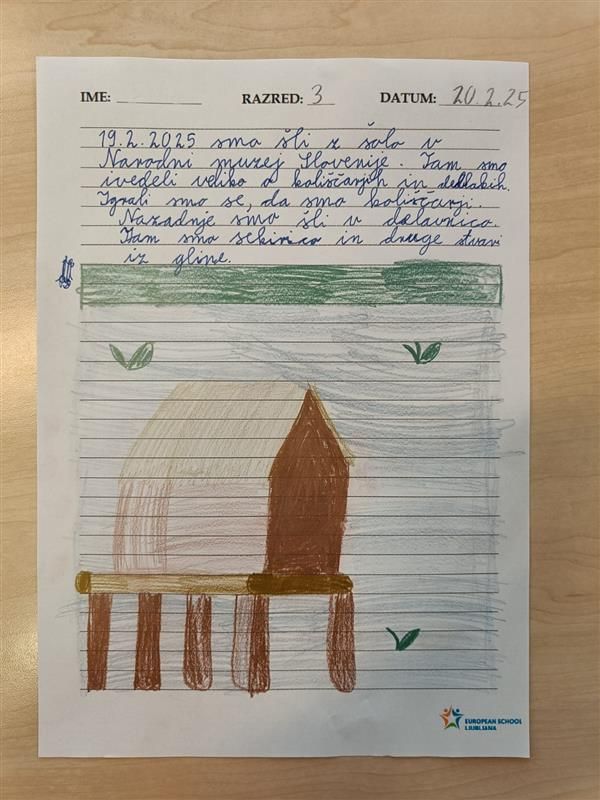 IME: RAZRED: 3 DATUM: 20.2.25
19.2.2025 smo šli z šolo v
Narodni muzej Slovenije. Tam smo
ivedeli veliko o koliščarjih in deblakih.
Igrali smo se, da smo koliščarji.
Nazadnje smo šli v delavnico.
Tam smo sekirico in druge stvari
iz gline.
EUROPEAN SCHOOL
LJUBLJANA